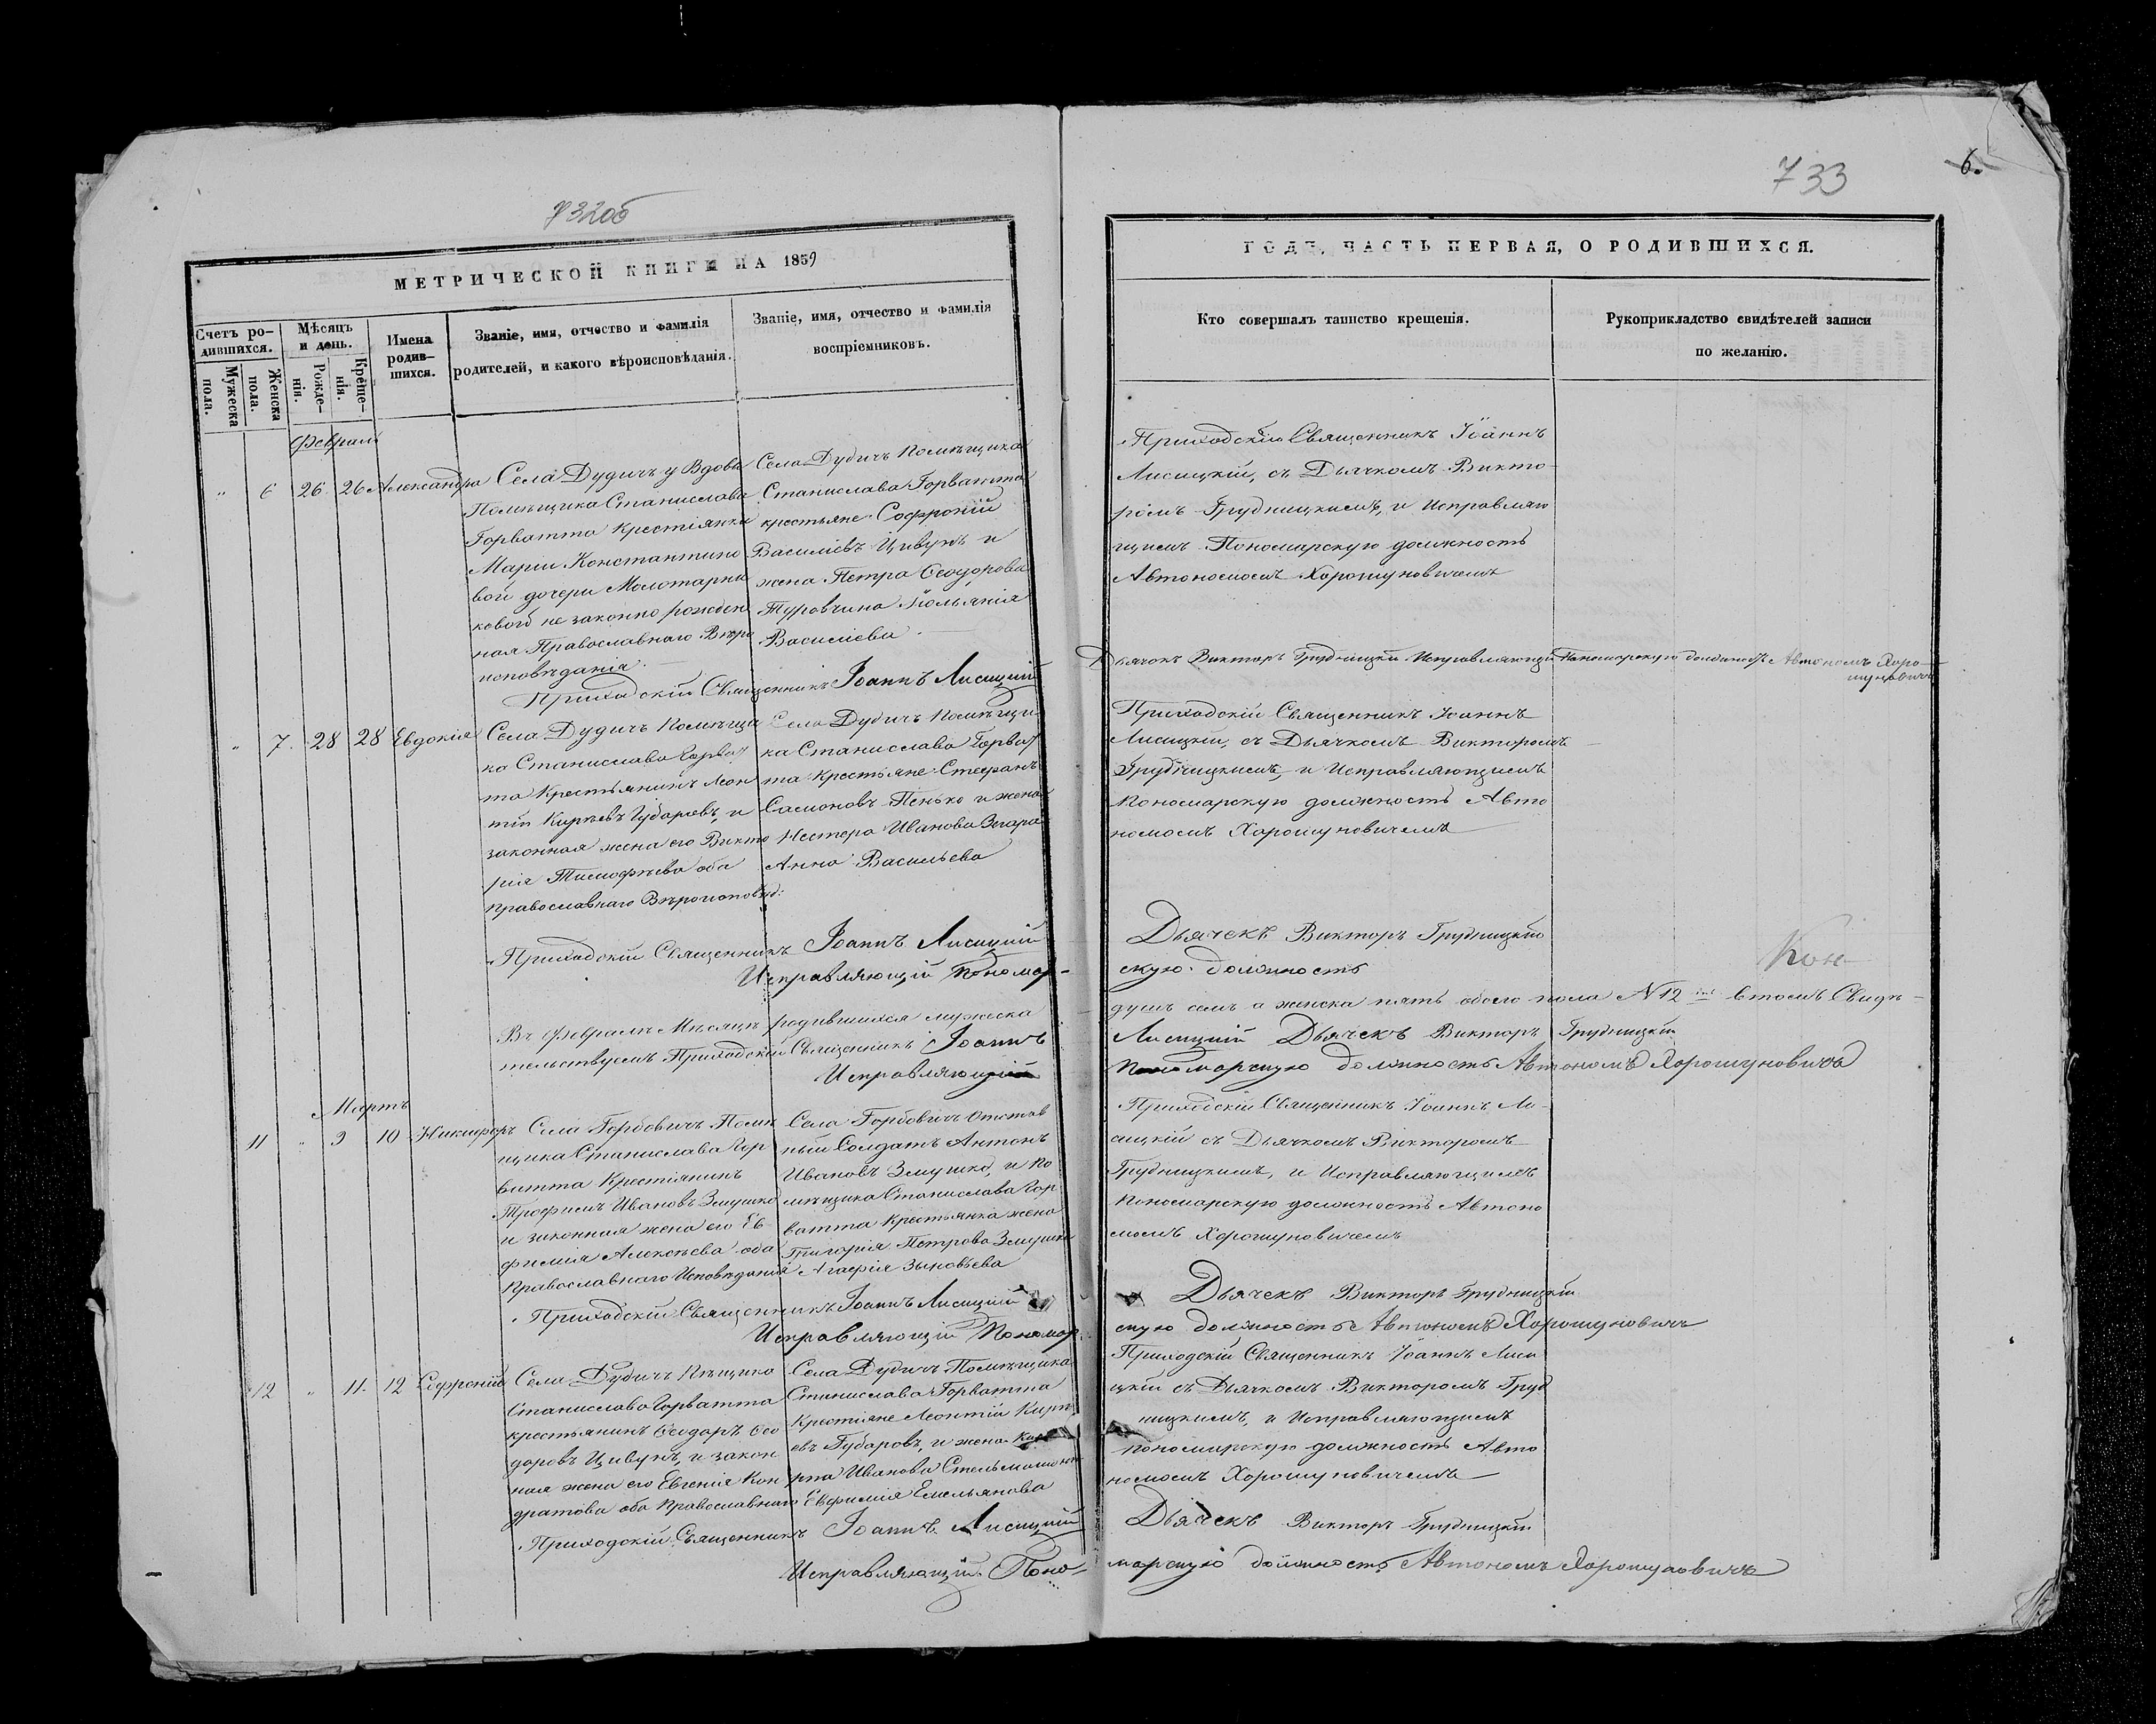 732об
МЕТРИЧЕСКОЙ КНИГИ НА 1859
Счетъ ро-
дившихся.
Мужеска
пола.
Женска
пола.
Мѣсяцъ
и день.
Рожде-
нія.
Креще-
нія.
Имена
родив-
шихся.
Званіе, имя, отчество и фамилія
родителей, и какого вѣроисповѣданія.
Званіе, имя, отчество и фамилія
воспріемниковъ.
Февраль
" 6 26 26 Александра
Села Дудичъ у Вдовы
Помѣщика Станислава
Горватта Крестіянки
Маріи Константино
вой дочери Молотарни
ковой не законно рожден
ная Православнаго Вѣро
исповѣданія.
Села Дудичъ Помѣщика
Станислава Горватта
крестьяне Софроній
Василіевъ Цивунъ и
жена Петра Ѳеодорова
Туровчина Іюльянія
Василіева.
Приходскій Священникъ Іоаннъ Лисицкій
" 7. 28 28 Евдокія
Села Дудичъ Помѣщи
ка Станислава Горват
та Крестьянинъ Леон
тій Кирѣевъ Губаревъ, и
законная жена его Викто
рія Тимофѣева оба
Православнаго Вѣроисповѣд:
Села Дудичъ Помѣщи
ка Станислава Горват
та Крестьяне Стефанъ
Самоновъ Пенько и жена
Нестера Иванова Згара
Анна Васильева
Приходскій Священникъ Іоаннъ Лисицкій
Исправляющій Пономар-
Въ Февралѣ Мѣсяцѣ родившихся мужеска
тельствуемъ Приходскій Священникъ Іоаннъ
Исправляющій
Мартъ
11 " 9 10 Никифоръ
Села Горбовичъ Помѣ
щика Станислава Гор
ватта Крестіянинъ
Трофимъ Ивановъ Змушко
и законная жена его Ев-
фимія Алексѣева оба
Православнаго Исповѣданія
Села Горбовичъ Отстав
ный Солдатъ Антонъ
Ивановъ Змушко, и По
мѣщика Станислава Гор
ватта Крестьянка жена
Григорія Петрова Змушки
Агафія Зыновѣева
Приходскій Священникъ Іоаннъ Лисицкій
Исправляющій Пономар
12 " 11. 12 Софроній
Села Дудичъ Пѣщика
Станислава Горватта
крестьянинъ Ѳеодоръ Ѳео
доровъ Цивунъ, и закон
ная жена его Евгенія Кон
дратова оба Православнаго
Села Дудичъ Помѣщика
Станислава Горватта
Крестіяне Леонтій Кирѣ
евъ Губаровъ, и жена
рпа Иванова
Евфимія Емельянова
Приходскій Священникъ Іоаннъ Лисицкій
Исправляющій Поно-
733
6.
ГОДЪ, ЧАСТЬ ПЕРВАЯ, О РОДИВШИХСЯ.
Кто совершалъ таинство крещенія.
Рукоприкладство свидѣтелей записи
по желанію.
Приходскій Священникъ Іоаннъ
Лисицкій, съ Дьячкомъ Викто-
ромъ Грудницкимъ, и Исправляю
щимъ Пономарскую должность
Автономомъ Хорошуновичемъ
Дьячокъ Викторъ Грудницкій Исправляющій Пономарскую должность Автономъ Хоро-
шуновичъ
Приходскій Священникъ Іоаннъ
Лисицкій, съ Дьячкомъ Викторомъ
Грудницкимъ, и Исправляющимъ
Пономарскую должность Авто
номомъ Хорошуновичемъ
Дьячекъ Викторъ Грудницкій
скую должность
душъ семъ а женска пять обоего пола N 12 втомъ Свидѣ-
Лисицкій Дьячекъ Викторъ Грудницкій
Пономарскую должность Автономъ Хорошуновичъ
Приходскій Священникъ Іоаннъ Ли-
сицкій съ Дьячкомъ Викторомъ
Грудницкимъ, и Исправляющимъ
Пономарскую должность Автоно
момъ Хорошуновичемъ
Дьячекъ Викторъ Грудницкій
скую должность Автономъ Хорошуновичъ
Приходскій Священникъ Іоаннъ Лиси
цкій съ Дьячкомъ Викторомъ Груд
ницкимъ, и Исправляющимъ
пономарскую должность Авто
номомъ Хорошуновичемъ
Дьячекъ Викторъ Грудницкій
марскую должность Автономъ Хорошуновичъ